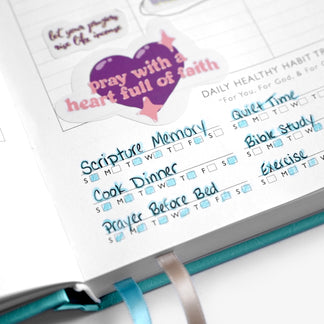 let your prayers
rise like incense
pray with a
heart full of faith
DAILY HEALTHY HABIT TR
"For You, For God, & For O
Scripture Memory
S M T W T F S
Cook Dinner
S M T W T F S
Prayer Before Bed
S M T W T F S
Quiet Time
S M T W
Bible Study
S M T W
Exercise
S M T